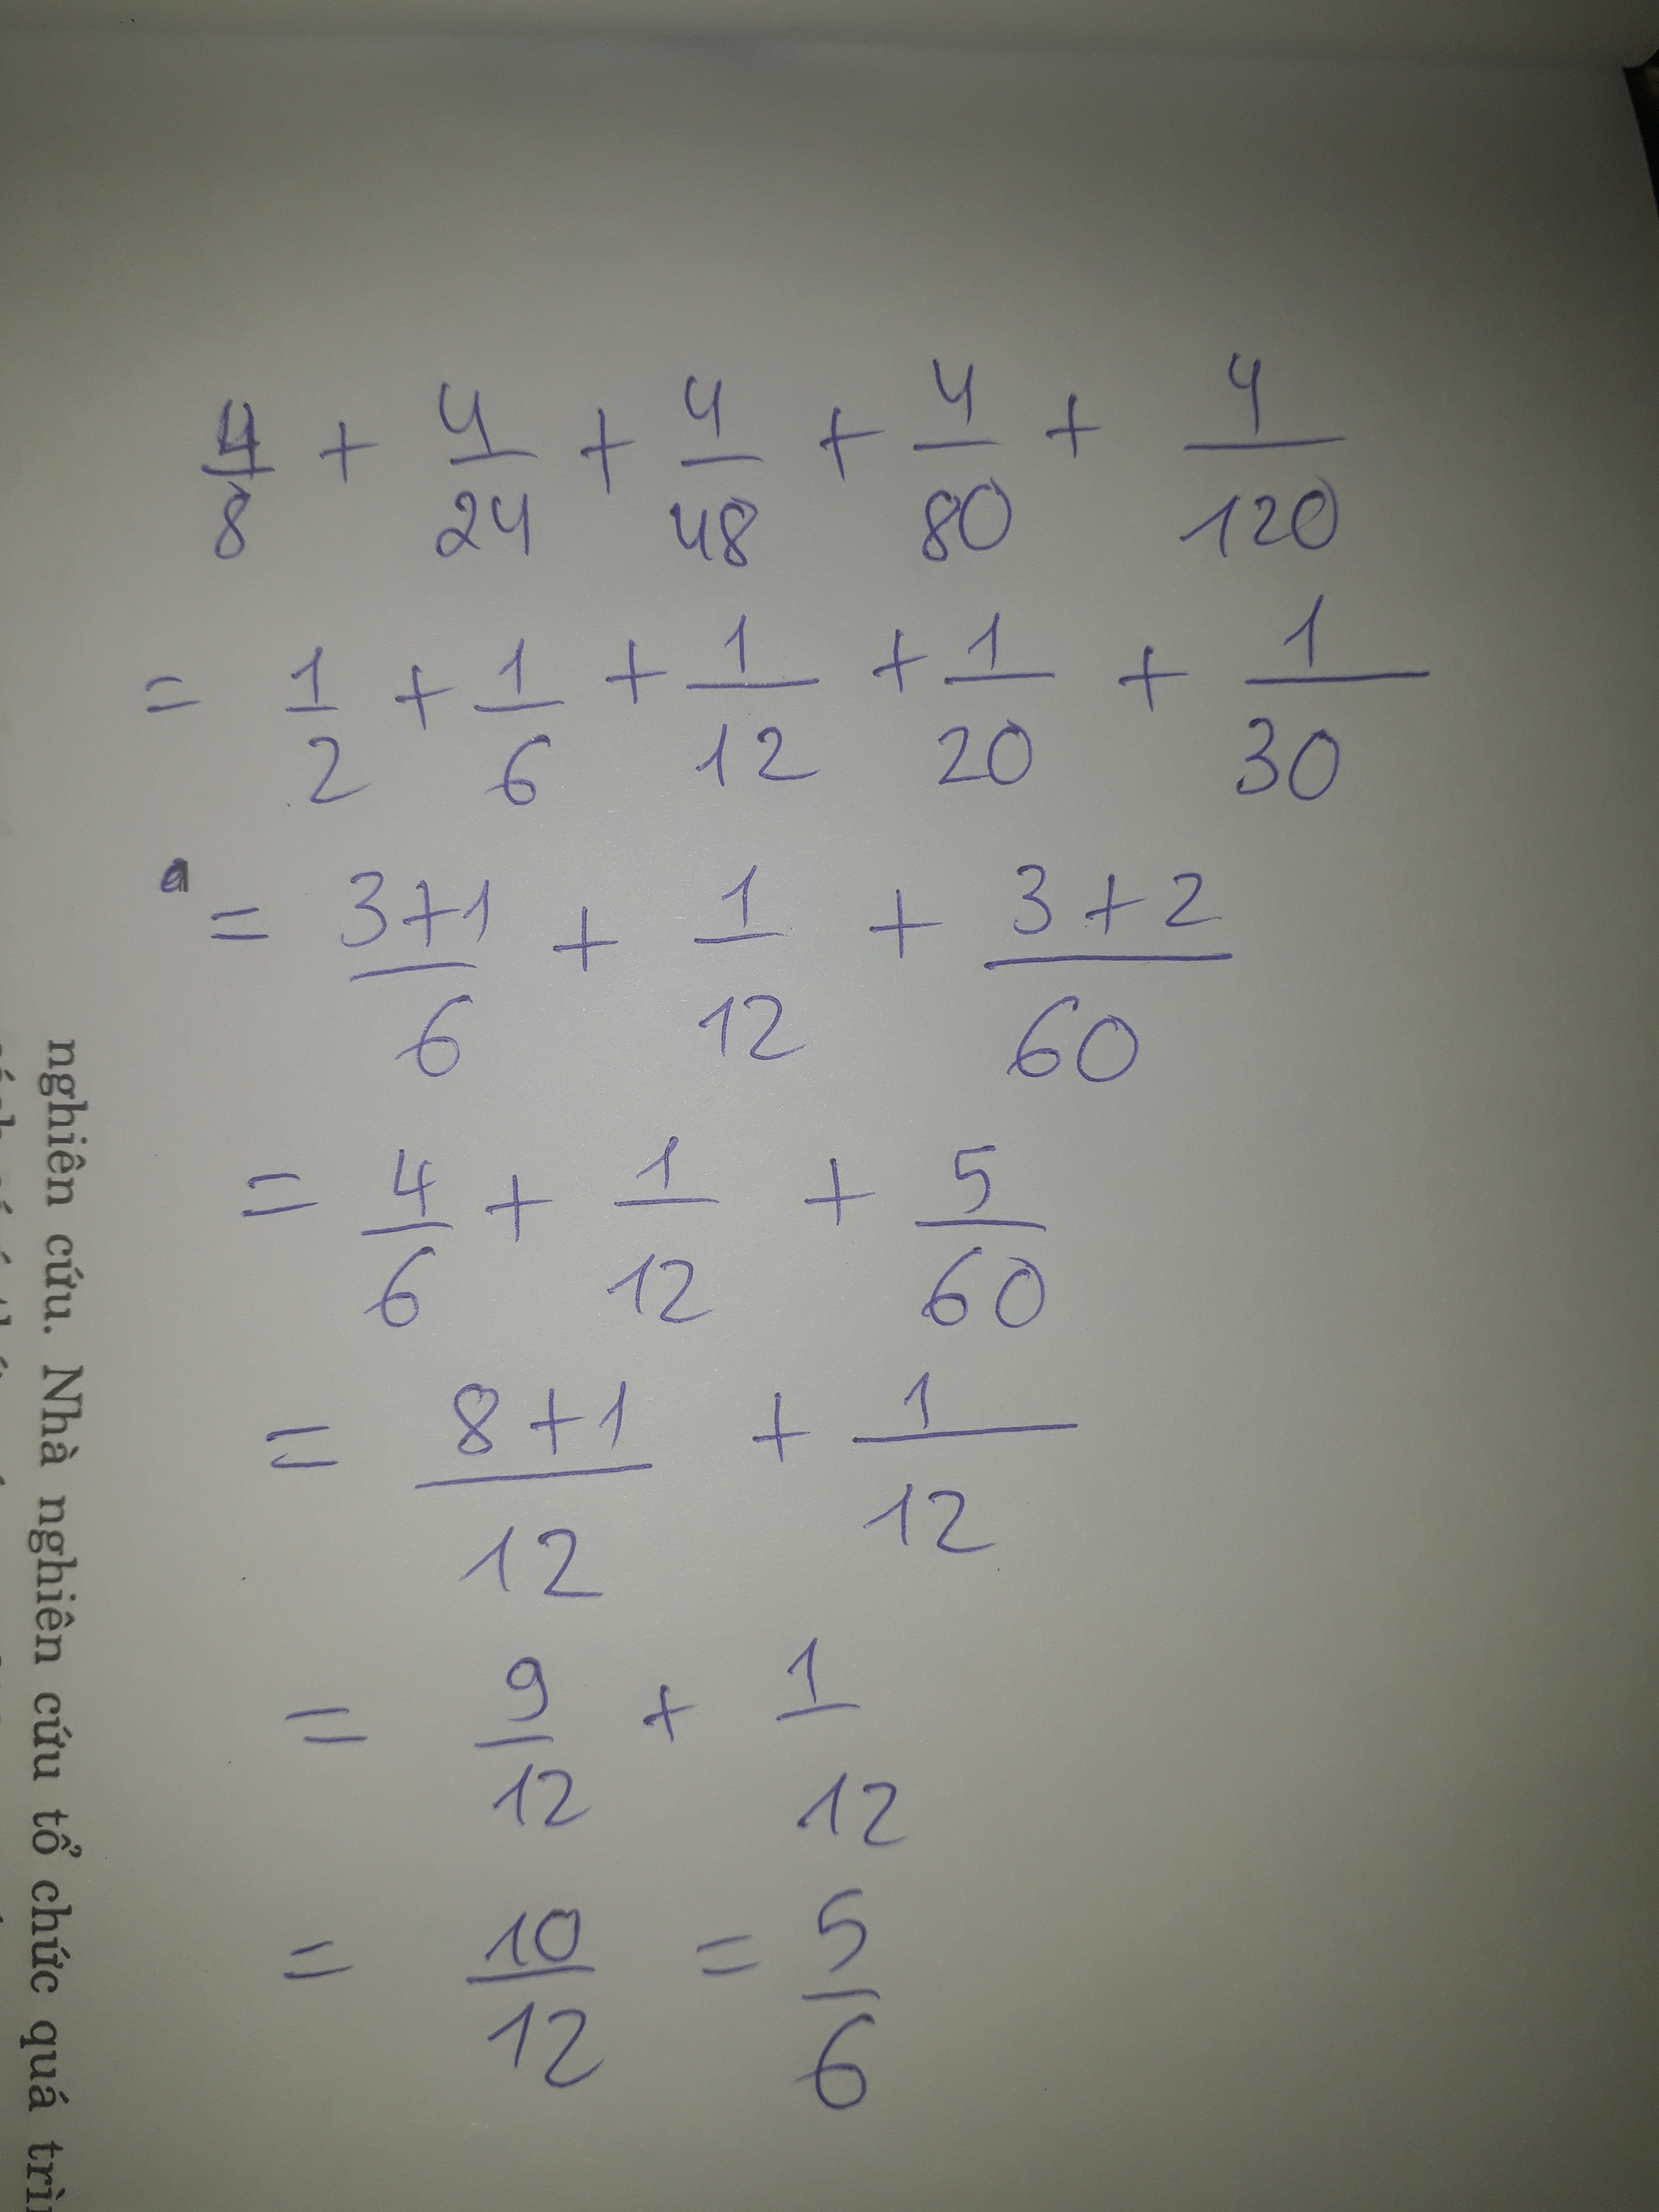 4/8 + 4/24 + 4/48 + 4/80 + 4/120
= 1/2 + 1/6 + 1/12 + 1/20 + 1/30
= (3+1)/6 + 1/12 + (3+2)/60
= 4/6 + 1/12 + 5/60
= (8+1)/12 + 1/12
= 9/12 + 1/12
= 10/12 = 5/6
nghiên cứu. Nhà nghiên cứu tổ chức quá